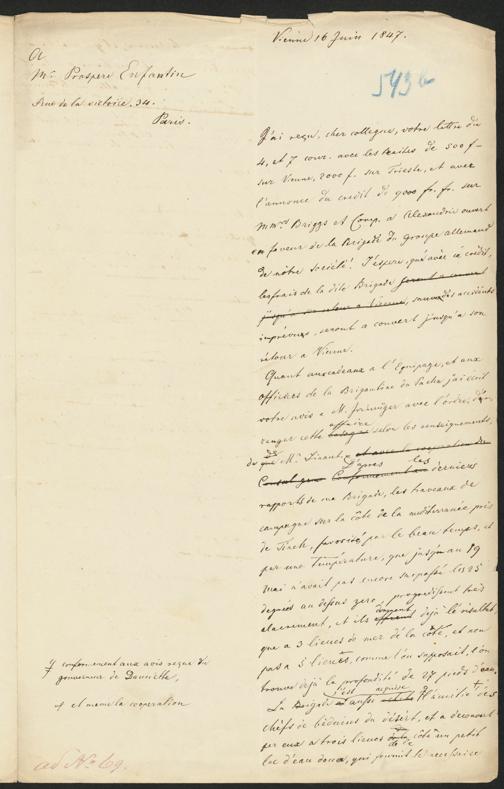 Vienne 16 Juin 1847.
543b
A
Mr. Prospere Enfantin
Rue de la victoire. 34.
Paris.
J'ai reçu, cher collegue, votre lettre du
4, et 7 cour. avec les traites de 500 f–
sur Vienne, 2000 f. sur Trieste, et avec
l'annonce du credit de 9000 fr. fr. sur
Mmrs Briggs et Comp. a Alexandrie ouvert
en faveur de la Brigade du groupe allemand
de nôtre société! J'espère, qu'avec ce credit,
les frais de la dite Brigade seront a couvert
jusqu'a son retour a Vienne, sauf des accidents
imprévus, seront a couvert jusqu'a son
retour a Vienne.
Quant aux cadeaux a l'Equipage, et aux
officiers de la Brigantine du Pacha j'ai écrit
votre avis a M. avec l'ordre, d'ar-
ranger cette affaire selon les renseignements,
de Mr. Linant, et avec la cooperation du
Consul gen. Conformement aux D'apres les derniers
rapports de ma Brigade, les travaux de
campagne sur la côte de la mediterranée près
de Tineh, favorisés par le beau temps, et
par une température, que jusqu'au 19
Mai n'avait pas encore surpassé les 25
degrés au dessus zero, progredissent très
clairement, et ils donnent déjà le resultat,
que a 3 lieues de mer de la côte, et non
pas a 5 lieues, comme l'on supposait, l'on
trouve déjà la profondité de 27 pieds d'eau.
La Brigade s'est aussi acquise l'amitié des
chefs de bedouins du désert, et a decouvert
par eux a trois lieues de la côte un petit
lac d'eau doux, qui fournit le necessaire
conformement aux avis reçus du
gouverneur de Damiette,
et meme la cooperation
ad No 69.